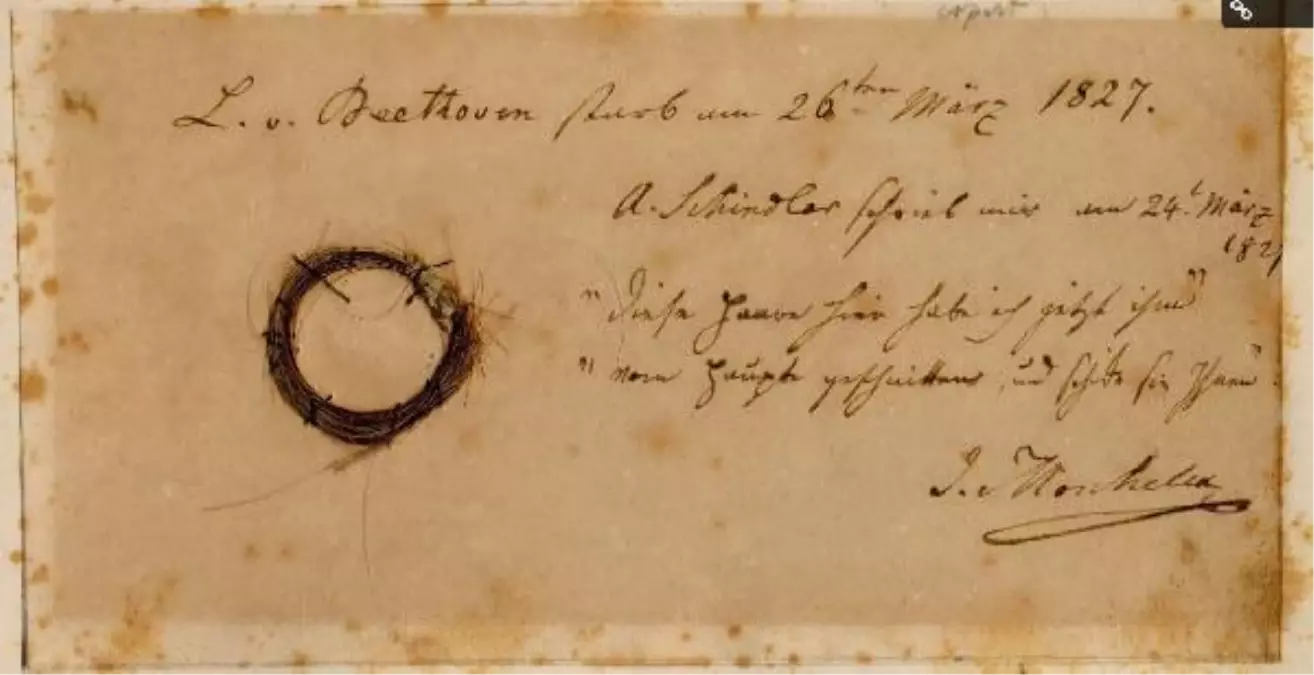 L. v. Beethoven starb am 26ten März 1827.
A. Schindler schrieb mir am 24t März
182
"Diese Haare hier habe ich jetzt ihm"
"vom Haupte geschnitten, und schicke sie Ihnen".
I. Moscheles